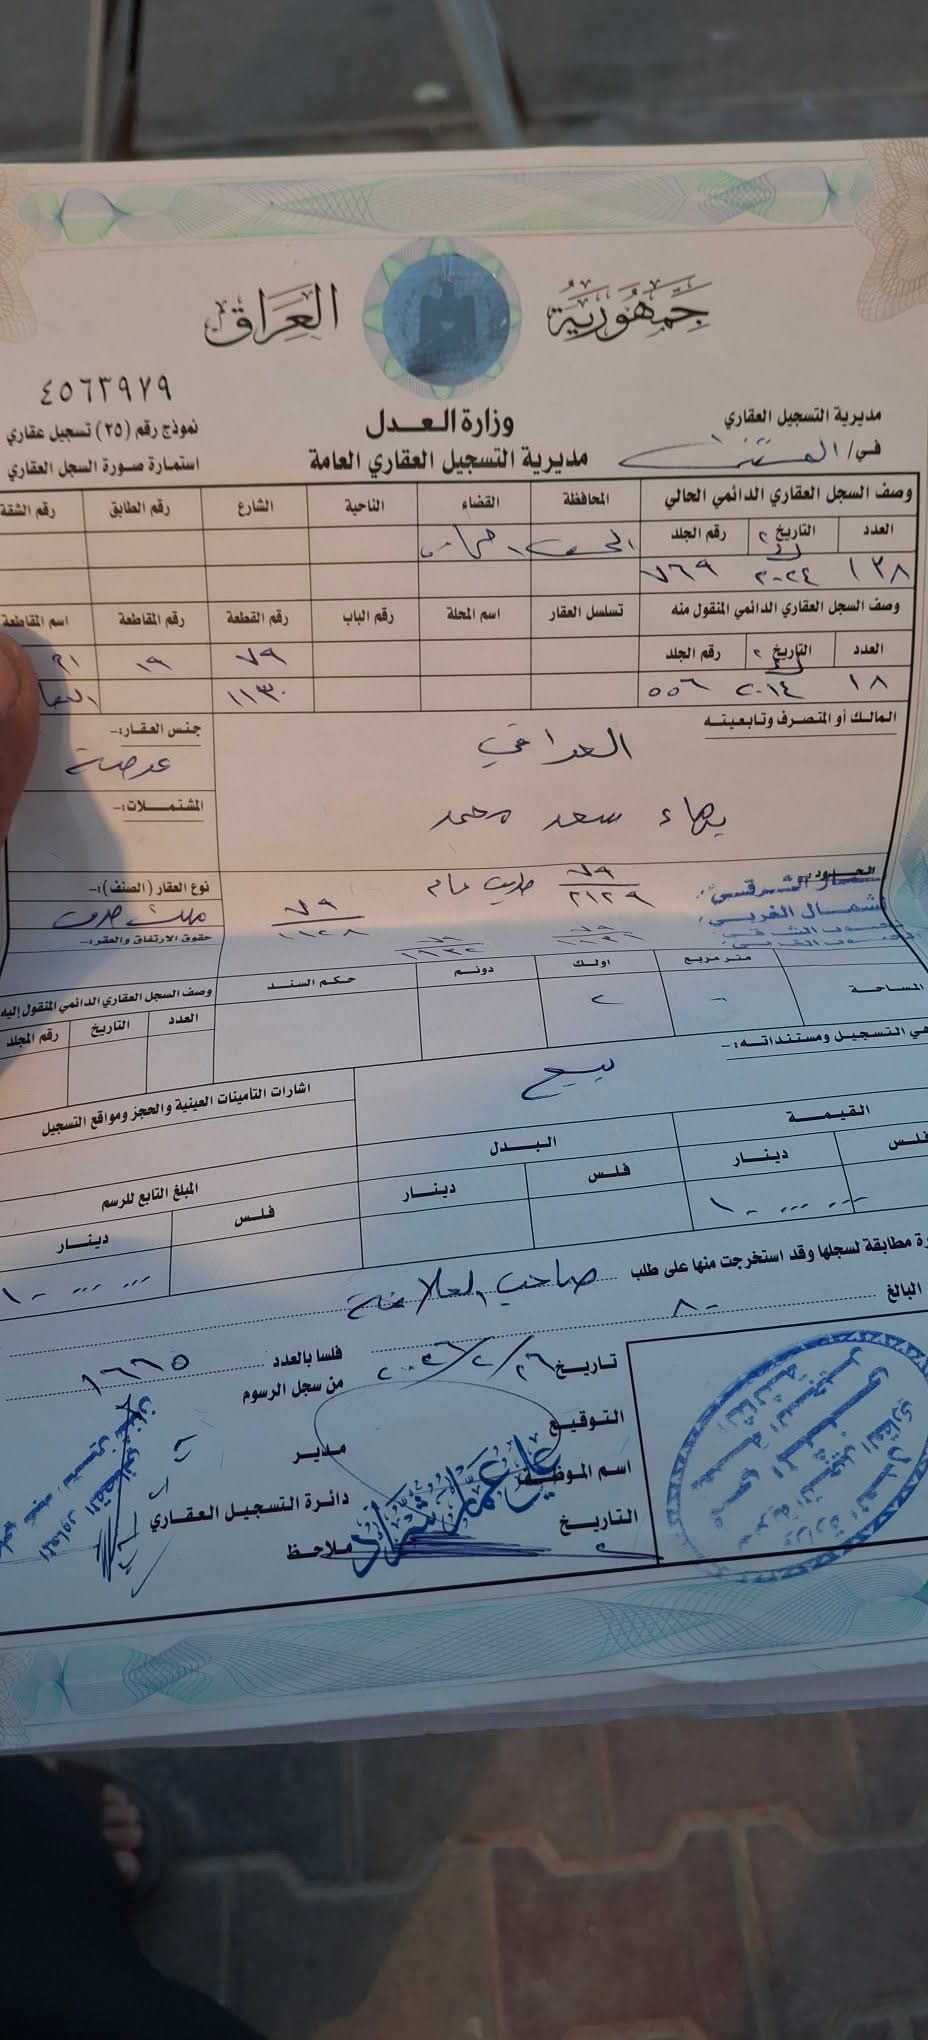 جمهورية العراق
٤٥٦٣٩٧٩
وزارة العدل
مديرية التسجيل العقاري العامة
مديرية التسجيل العقاري
في/
نموذج رقم (٢٥) تسجيل عقاري
استمارة صورة السجل العقاري
وصف السجل العقاري الدائمي الحالي المحافظة القضاء الناحية الشارع رقم الطابق رقم الشقة
العدد التاريخ رقم الجلد
١٣٨ ٢٠٢٤ ٧٦٩
وصف السجل العقاري الدائمي المنقول منه تسلسل العقار اسم المحلة رقم الباب رقم القطعة رقم المقاطعة اسم المقاطعة
العدد التاريخ رقم الجلد ٧٩ ١٩
١٨ ٢٠١٤ ٥٥٦ ١١٣٠
المالك أو المتصرف وتابعيته
العراقي
بهاء سعد محمد
جنس العقار:-
عرصة
المشتملات:-
نوع العقار (الصنف):-
ملك صرف
حقوق الارتفاق والعقر:-
الحدود:
٧٩
٢١٢٩
طريق عام
٧٩
١١٢٨
الشمال الغربي:
المساحة متر مربع اولك دونم حكم السند
٢
وصف السجل العقاري الدائمي المنقول إليه
العدد التاريخ رقم المجلد
هي التسجيل ومستنداته:-
بيع
اشارات التأمينات العينية والحجز ومواقع التسجيل
القيمة البدل المبلغ التابع للرسم
فلس دينار فلس دينار فلس دينار
١٠ ... ...
١٠ ... ...
رة مطابقة لسجلها وقد استخرجت منها على طلب صاحب العلاقة
البالغ ٨٠
فلسا بالعدد ١٦٦٥ تاريخ ٢٦/٢/
من سجل الرسوم
التوقيع
اسم الموظف
التاريخ
مدير
دائرة التسجيل العقاري
ملاحظ